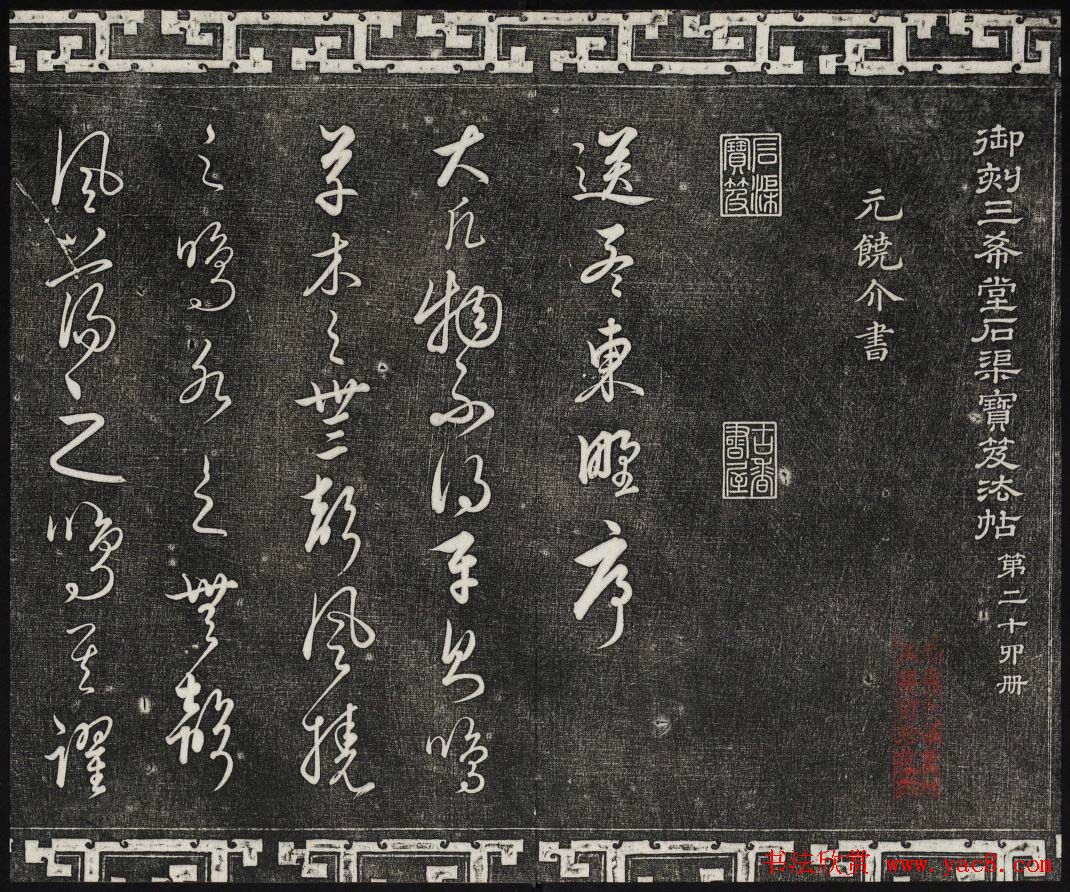 御刻三希堂石渠寶笈法帖 第二十四册
元饒介書
石渠寶笈
古香書屋
送孟東野序
大凡物不得平則鳴
草木之無聲風撓
之鳴水之無聲
風蕩之鳴其躍
书法欣赏 www.yac8.com